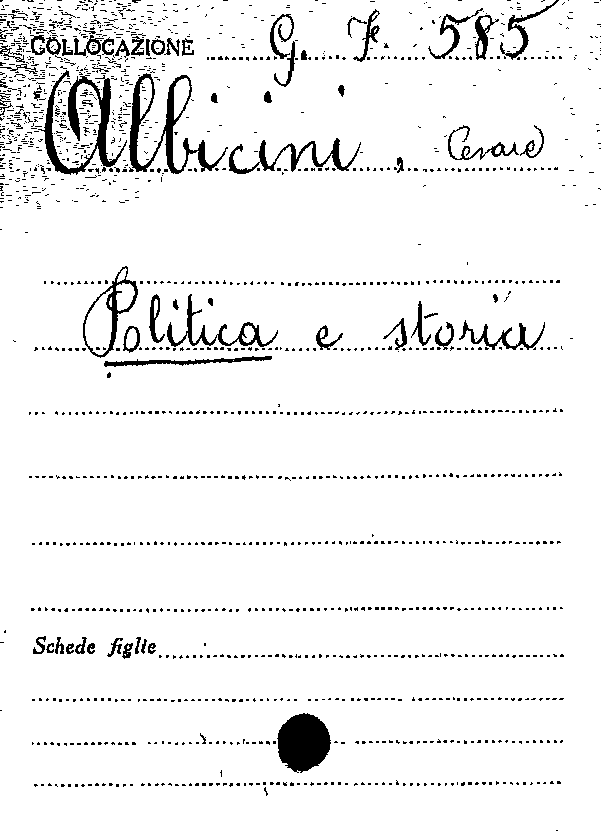 COLLOCAZIONE G. F. 585
Albicini, Cesare
Politica e storia
Schede figlie